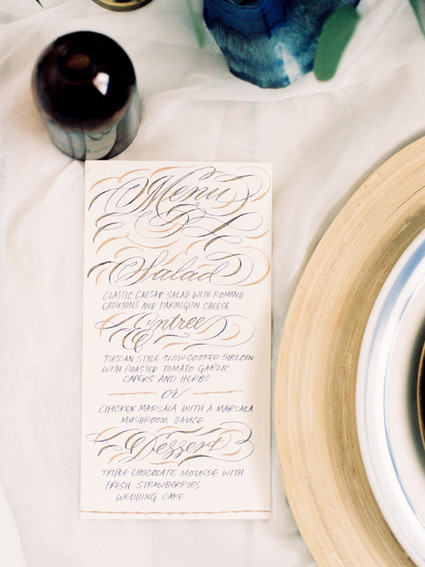 Menu
Salad
CLASSIC CAESAR SALAD WITH ROMANO
CROUTONS AND PARMIGIAN CHEESE
Entree
TUSCAN STYLE SLOW COOKED SIRLOIN
WITH ROASTED TOMATO GARLIC
CAPERS AND HERBS
or
CHICKEN MARSALA WITH A MARSALA
MUSHROOM SAUCE
Dessert
TRIPLE CHOCOLATE MOUSSE WITH
FRESH STRAWBERRIES
WEDDING CAKE